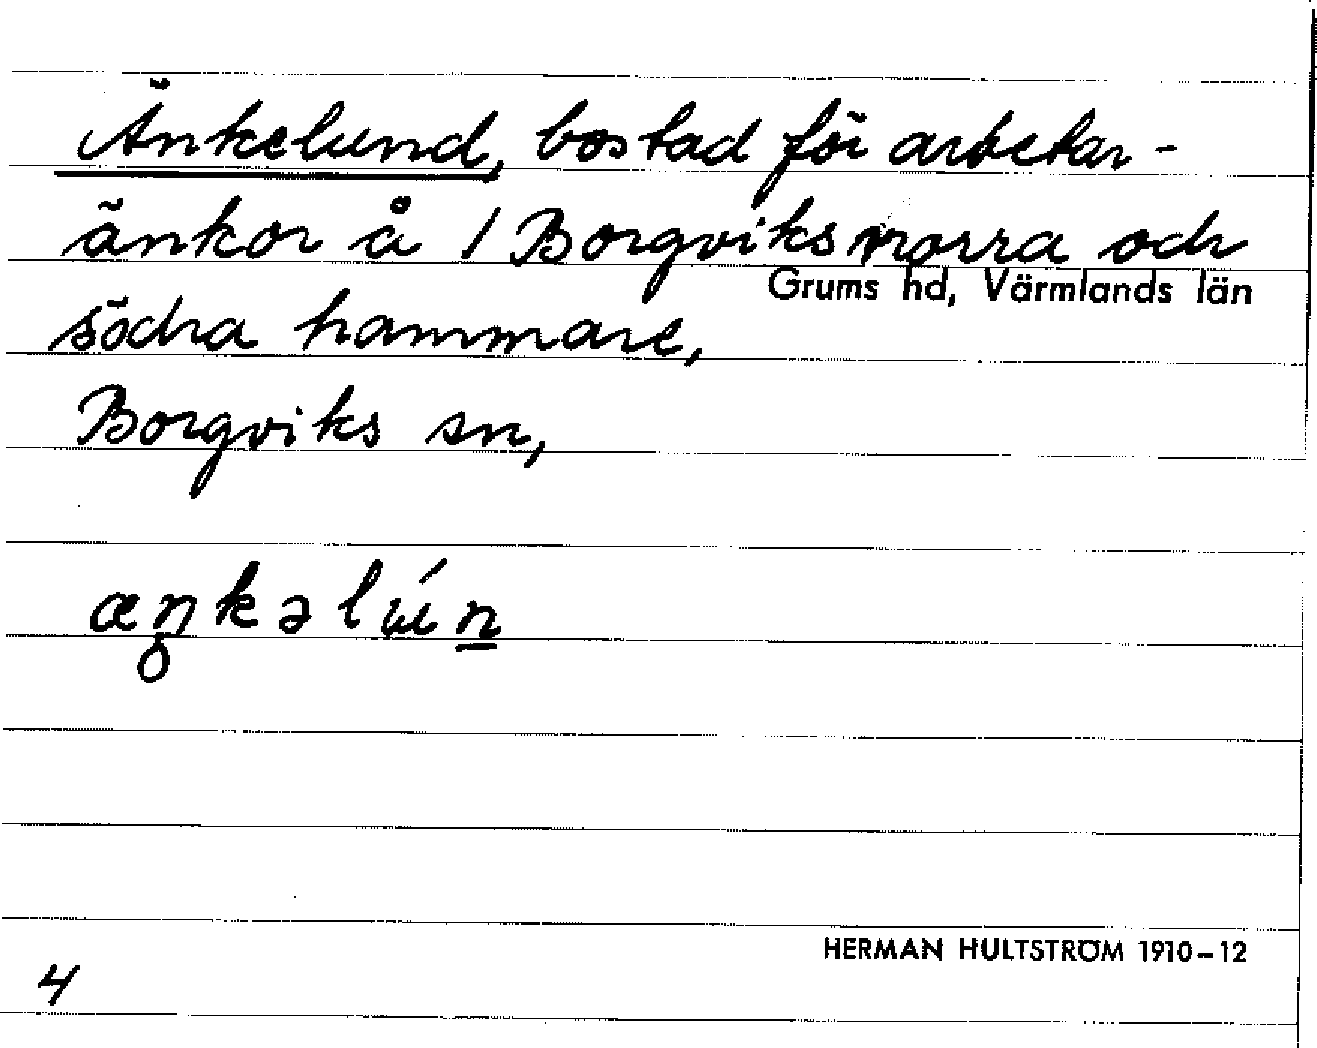 Änkelund, bostad för arbetar-
änkor å / Borgviks norra och
Grums hd, Värmlands län
södra hammare,
Borgviks sn,
æŋkəlún
4
HERMAN HULTSTRÖM 1910-12